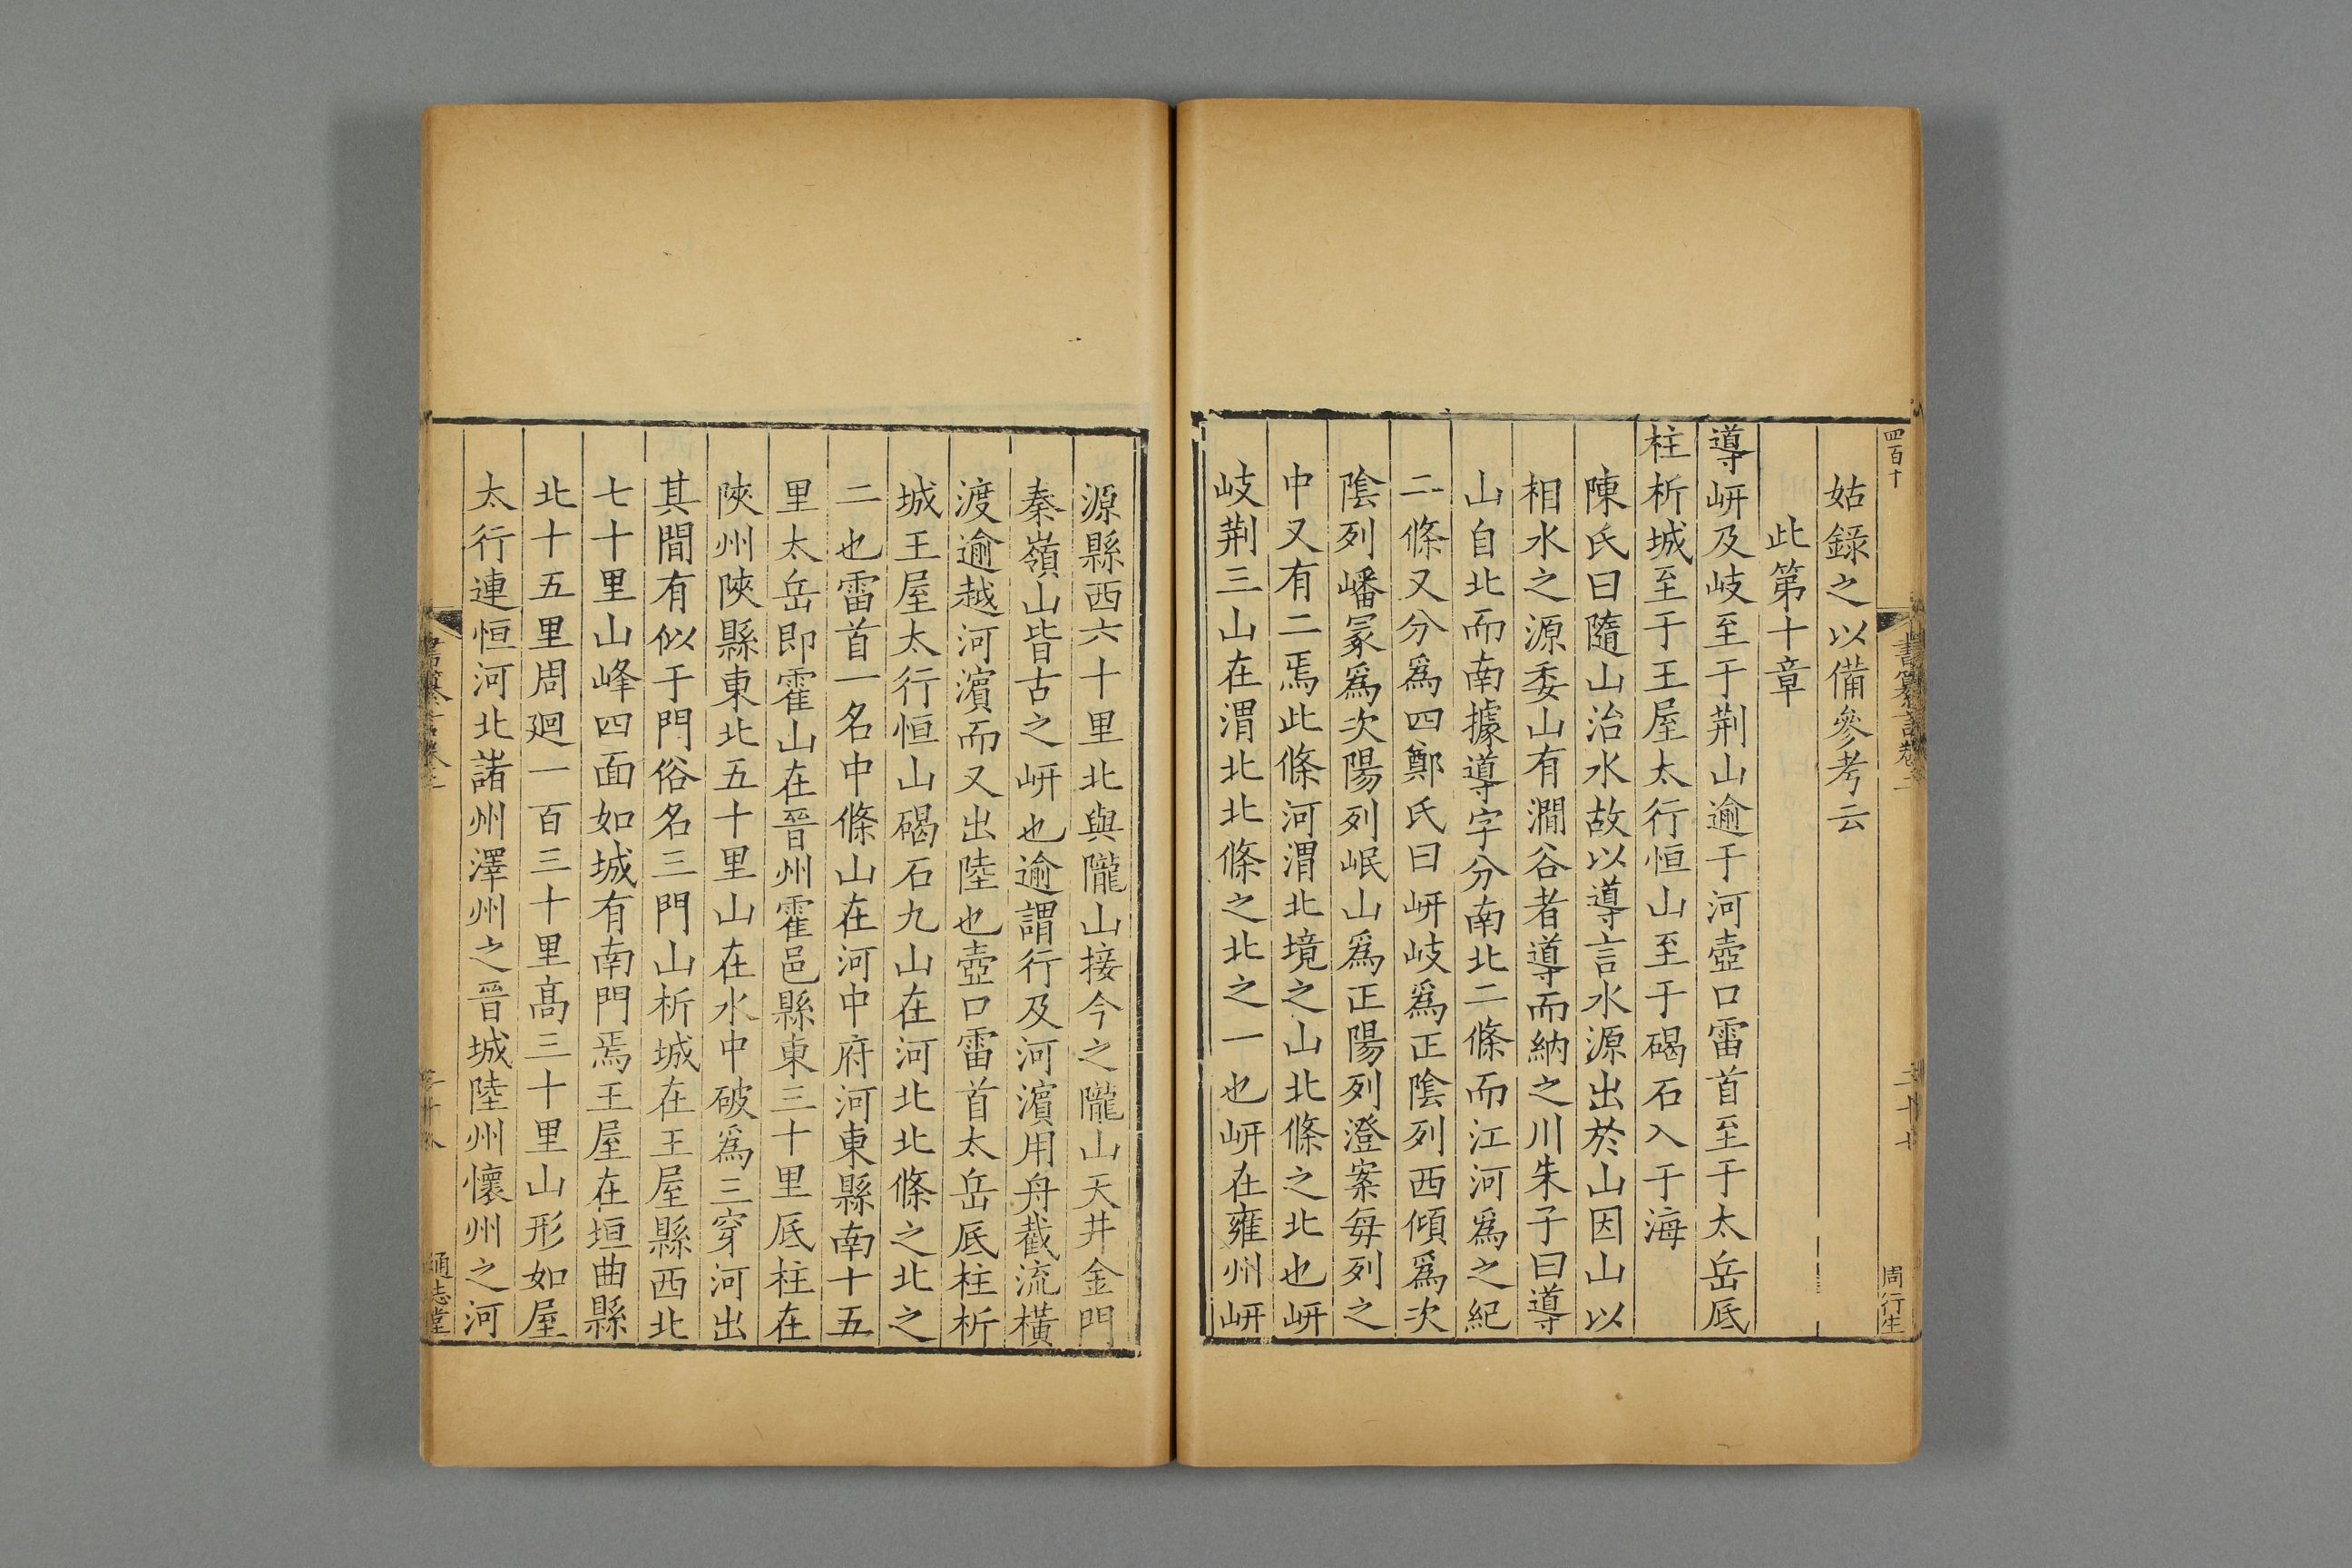 四百十
書纂言卷二
二十七
周行生
姑錄之以備參考云
此第十章
導岍及岐至于荆山逾于河壺口雷首至于太岳厎
柱析城至于王屋太行恒山至于碣石入于海
陳氏曰隨山治水故以導言水源出於山因山以
相水之源委山有澗谷者導而納之川朱子曰導
山自北而南據導字分南北二條而江河爲之紀
二條又分爲四鄭氏曰岍岐爲正陰列西傾爲次
陰列嶓冢爲次陽列岷山爲正陽列澄案每列之
中又有二焉此條河渭北境之山北條之北也岍
岐荆三山在渭北北條之北之一也岍在雍州岍
源縣西六十里北與隴山接今之隴山天井金門
秦嶺山皆古之岍也逾謂行及河濱用舟截流橫
渡逾越河濵而又出陸也壺口雷首太岳厎柱析
城王屋太行恒山碣石九山在河北北條之北之
二也雷首一名中條山在河中府河東縣南十五
里太岳即霍山在晉州霍邑縣東三十里厎柱在
陝州陝縣東北五十里山在水中破爲三穿河出
其間有似于門俗名三門山析城在王屋縣西北
七十里山峰四面如城有南門焉王屋在垣曲縣
北十五里周廻一百三十里髙三十里山形如屋
太行連恒河北諸州澤州之晉城陸州懷州之河
書纂言卷二
二十八
通志堂